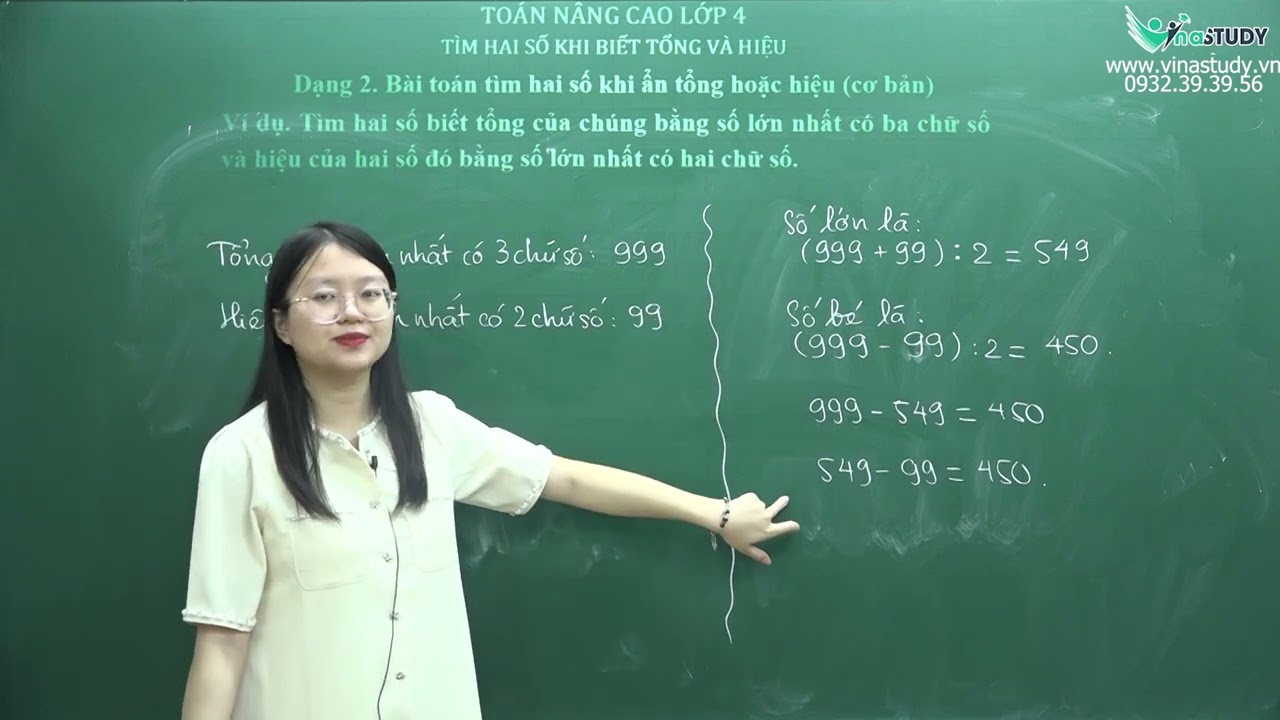 TOÁN NÂNG CAO LỚP 4
TÌM HAI SỐ KHI BIẾT TỔNG VÀ HIỆU
Dạng 2. Bài toán tìm hai số khi ẩn tổng hoặc hiệu (cơ bản)
Ví dụ. Tìm hai số biết tổng của chúng bằng số lớn nhất có ba chữ số
và hiệu của hai số đó bằng số lớn nhất có hai chữ số.
VinaSTUDY
www.vinastudy.vn
0932.39.39.56
Tổng nhất có 3 chữ số: 999
nhất có 2 chữ số: 99
Số lớn là:
(999 + 99) : 2 = 549
Số bé là:
(999 - 99) : 2 = 450.
999 - 549 = 450
549 - 99 = 450.